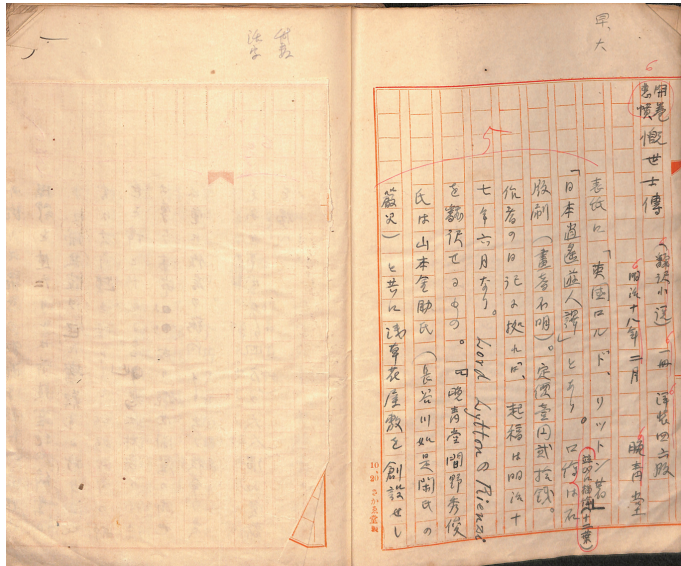 早大
開巻
悲憤 慨世士傳 (飜訳小説) 一冊 洋装四六版
明治十八年二月 晩青堂
表紙に「英国ロルド、リットン著
「日本逍遙遊人譯」とあり。口絵は石
版刷(畫者不明)。定價壹円貳拾銭。
作者の日記に拠れば、起稿は明治十
七年六月なり。Lord LyttonのRienzi
を飜訳せるもの。晩青堂間野秀俊
氏は山本金助氏(長谷川如是閑氏の
厳父)と共に浅草花屋敷を創設せし
10, 20